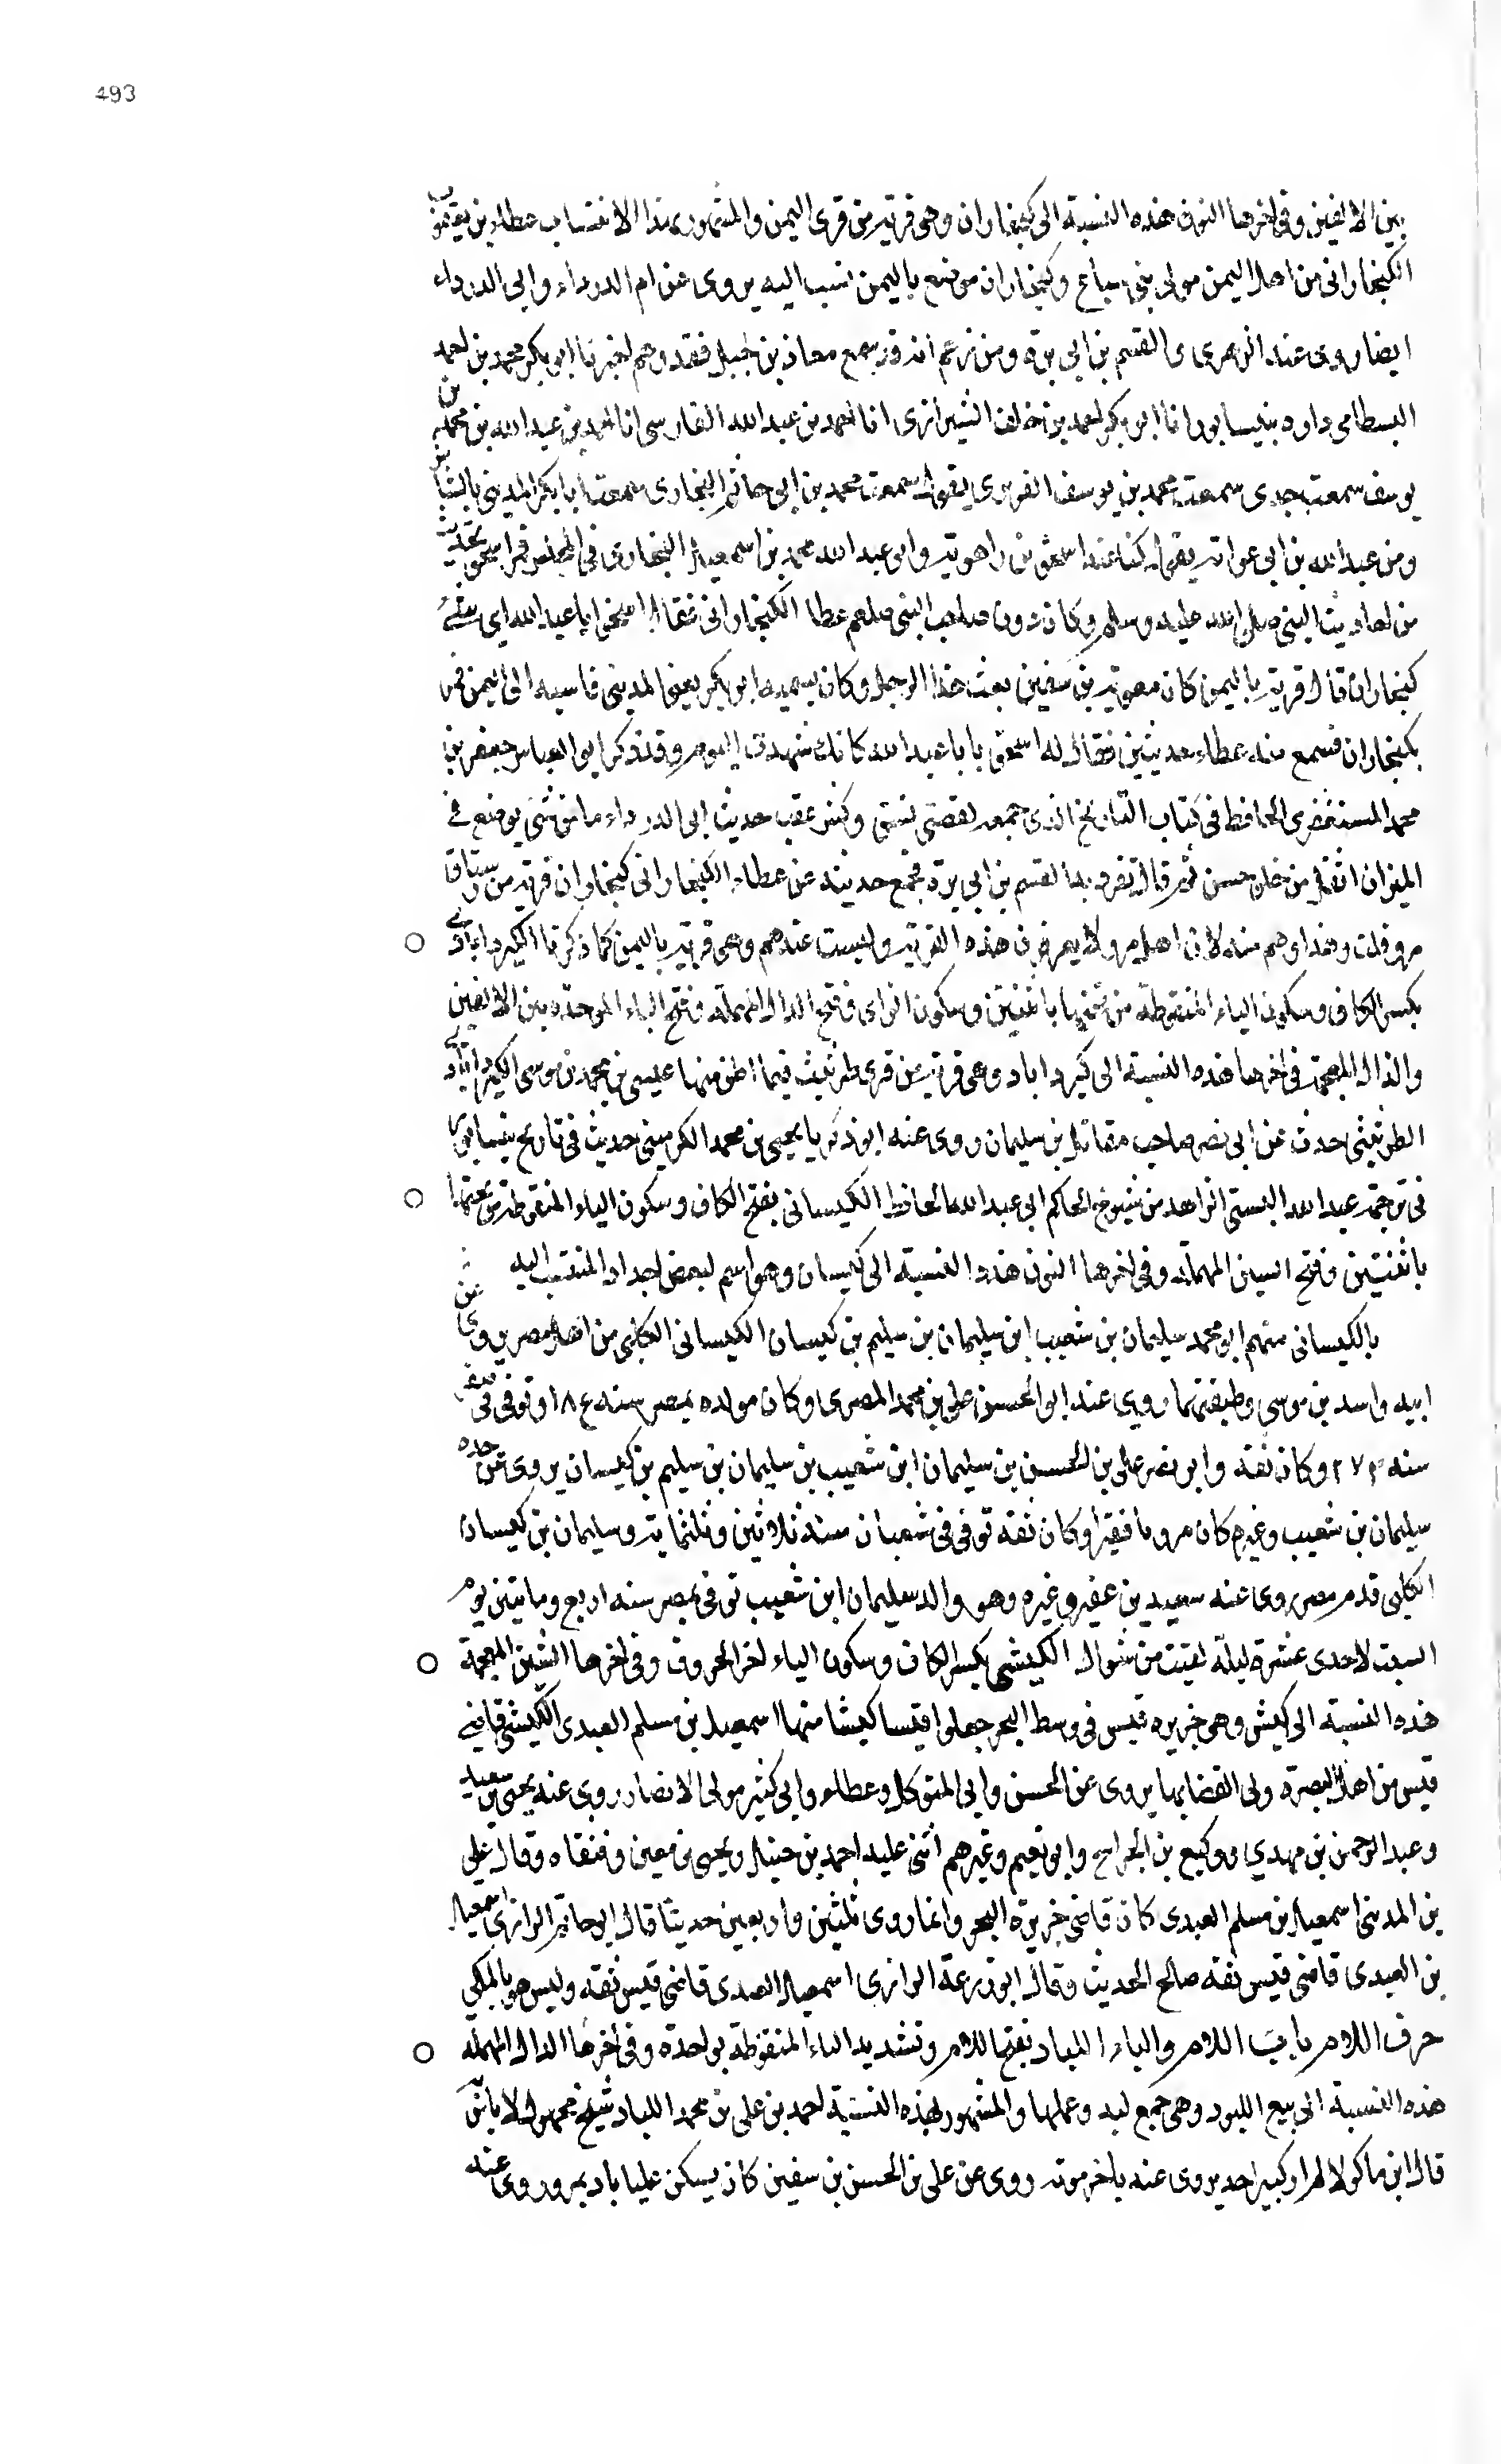 493
بين الالفين وفى اخرها النون هذه النسبة الى كيخاران وهى قرية من قرى اليمن والمشهور بهذا الانتساب عطاء بن يعقوب
الكيخارانى من اهل اليمن مولى بنى سباع وكيخاران موضع باليمن نسب اليه يروى عن ام الدرداء وابى الدرداء
ايضا روى عنه الزهرى والقسم بن ابى بزة ومن زعم انه قد سمع معاذ بن جبل فقد وهم اخبرنا ابو بكر محمد بن احمد
البسطامى داوه بنيسابور انا ابو بكر احمد بن خلف الشيرازى انا احمد بن عبد الله الفارسى انا احمد بن عبد الله بن محمد بن
يوسف سمعت جدى سمعت محمد بن يوسف الفربرى يقول سمعت محمد بن ابى حاتم البخارى سمعت ابا بكر المدينى بالشاش
ومن عبد الله بن ابى عرابة يقول كنا عند اسحق بن راهويه وابو عبد الله محمد بن اسمعيل البخارى فى المجلس فمر اسحق بحديث
من احاديث النبى صلى الله عليه وسلم وكان دون صاحب النبى صلعم عطا الكيخارانى فقال اسحق ابا عبد الله اى شىء
كيخاران قال قرية باليمن كان معوية بن سفين بعث هذا الرجل وكان يسميه ابو بكر يعنى المدينى فاسيه الى اليمن فمر
بكيخاران فسمع منه عطاء حديثين فقال له اسحق يا با عبد الله كانك شهدت اليوم وقد ذكر ابو العباس جعفر بن
محمد المستغفرى الحافظ فى كتاب التاريخ الذى جمعه لقصتى نسف وكش عقب حديث ابى الدرداء ما من شىء يوضع فى
الميزان اثقل من خلق حسن ثم قال تفرد به القسم بن ابى بزة مجمع حديثه عن عطاء الكيخارانى كيخاران قرية من رستاق
مرو قلت وهذا وهم منه لان اهل مرو لا يعرفون هذه القرية وليست عندهم وهى قرية باليمن كما ذكرنا الكيرداباذى
بكسر الكاف وسكون الياء المنقوطة من تحتها باثنتين وسكون الراى وفتح الدال المهملة وفتح الباء الموحدة بين الالفين
والذال المعجمة فى اخرها هذه النسبة الى كيرداباد وهى قرية من قرى طريثيث فيما اظن منها عيسى بن محمد بن موسى الكيرداباذى
الطريثيثى حدث عن ابى نصر صاحب مقاتل بن سليمان روى عنه ابو زكريا يحيى بن محمد الكرمينى حديث فى تاريخ نيسابور
فى ترجمة عبد الله البستى الزاهد من شيوخ الحاكم ابى عبد الله الحافظ الكيسانى بفتح الكاف وسكون الياء المنقوطة من تحتها
باثنتين وفتح السين المهملة وفى اخرها النون هذه النسبة الى كيسان وهو اسم لبعض اجداد المنتسب اليه
بالكيسانى منهم ابو محمد سليمان بن شعيب ابن سليمان بن سليم بن كيسان الكيسانى الكلبى من اهل مصر يروى عن
ابيه واسد بن موسى وطبقتهما روى عنه ابو الحسن على بن محمد المصرى وكان مولده بمصر سنه ١٨٤ وتوفى فى صفر
سنه ٢٧٣ وكان ثقة وابو نصر على بن الحسن بن سليمان ابن شعيب بن سليمان بن سليم بن كيسان يروى عن جده
سليمان بن شعيب وغيره كان مروبا فقيرا وكان ثقة توفى فى شعبان سنة ثلاثين وثلثماية وسليمان بن كيسان
الكلبى قدم مصر روى عنه سعيد بن عفير وغيره وهو والد سليمان ابن شعيب توفى بمصر سنه اربع ومايتين يوم
السبت لاحدى عشرة ليلة بقيت من شوال الكيشى بكسر الكاف وسكون الياء اخر الحروف وفى اخرها الشين المعجمة
هذه النسبة الى كيش وهى جزيره قيس فى وسط البحر جعلوا قيسا كيشا منها اسمعيل بن مسلم العبدى الكيشى قاضى
قيس من اهل البصرة ولى القضا بها يروى عن الحسن وابى المتوكل وعطاء وابى كثير مولى الانصار روى عنه يحيى بن سعيد
وعبد الرحمن بن مهدى ووكيع بن الجراح وابو نعيم وغيرهم اثنى عليه احمد بن حنبل ويحيى بن معين وثقاه وقال على
بن المدينى اسمعيل بن مسلم العبدى كان قاضى جزيرة البحر وانما روى ثلثين واربعين حديثا قال ابو حاتم الرازى اسمعيل
بن العبدى قاضى قيس ثقه صالح الحديث وقال ابو زرعة الرازى اسمعيل العبدى قاضى قيس ثقه وليس هو بالمكى
حرف اللام باب اللام والباء اللباد بفتح اللام وتشديد الباء المنقوطة بواحدة وفى اخرها الدال المهملة
هذه النسبة الى بيع اللبود وهى جمع لبد وعملها والمشهور بهذه النسبة احمد بن على بن محمد اللباد شيخ مجهول لا باس به
قال ابن ماكولا لم ار كبير احد يروى عنه باخر موته روى عن على بن الحسن بن سفين كان يسكن عليا باد بمرو روى عنه